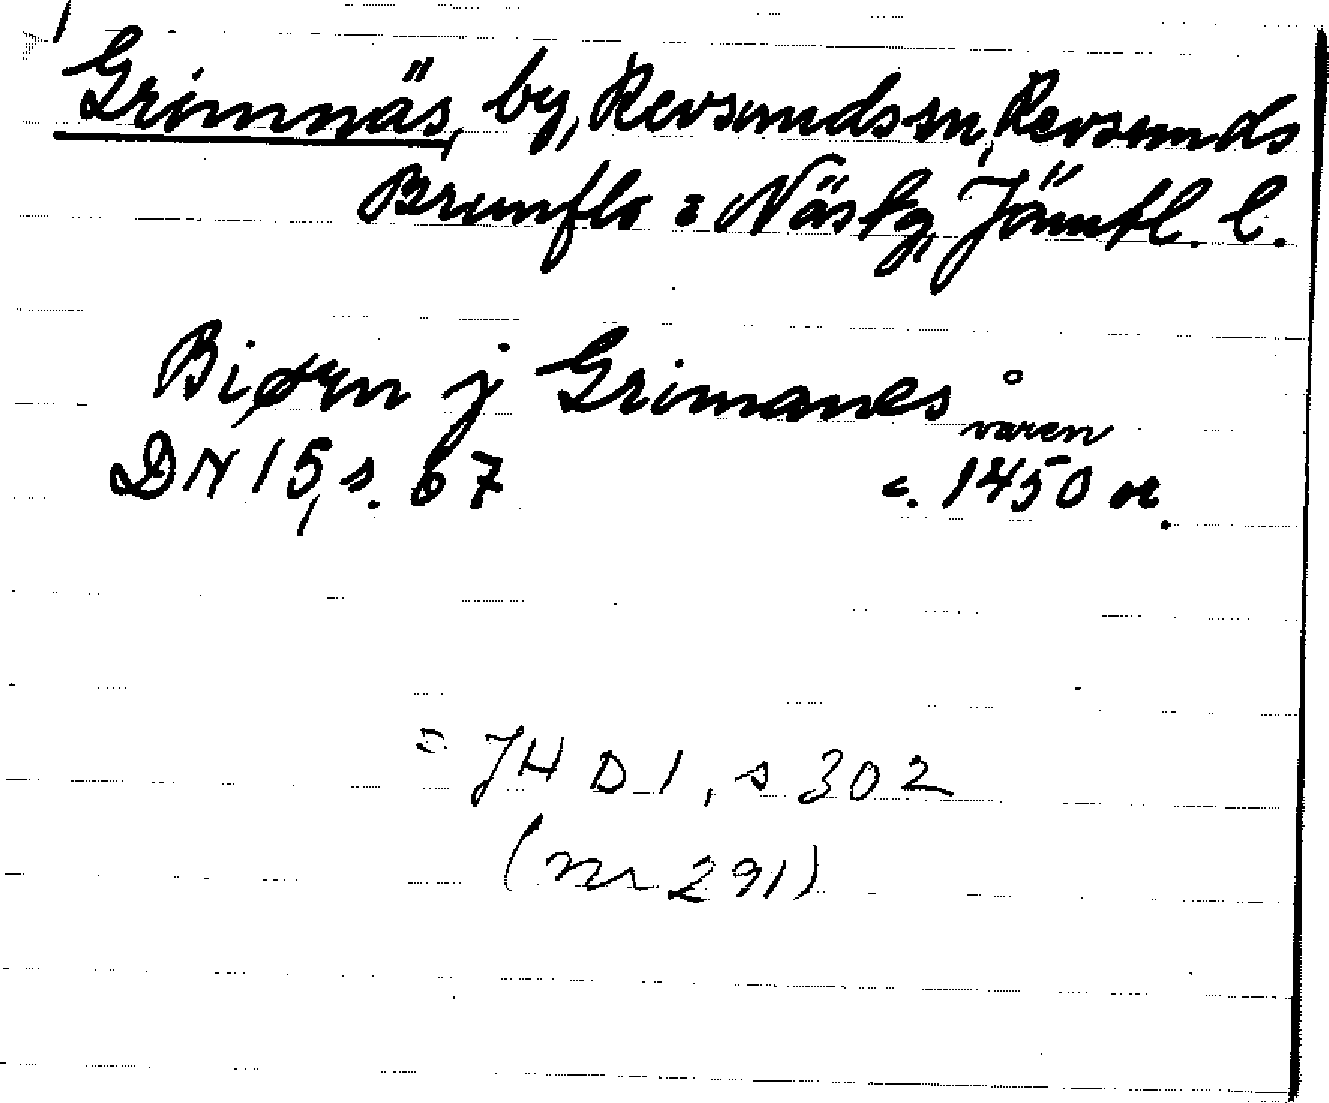 Grimnäs, by, Revsunds sn, Revsunds
Brunflo o Näs tg, Jämtl. l.
Biørn j Grimanes
våren
DN 15, s. 67 c. 1450 or.
= JHD 1, s 302
(nr 291)